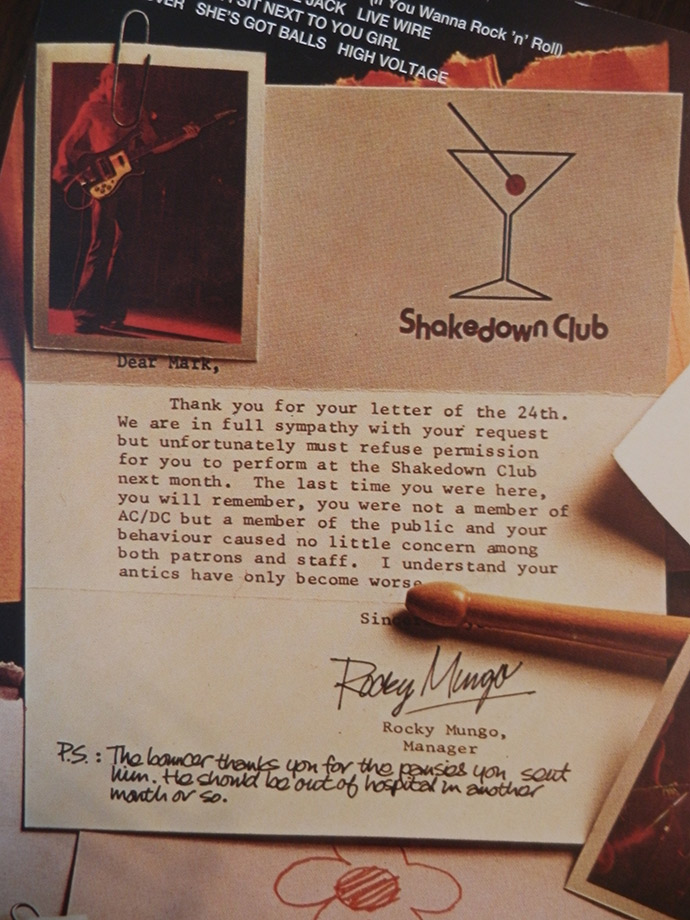 (If You Wanna Rock 'n' Roll)
JACK LIVE WIRE
SIT NEXT TO YOU GIRL
SHE'S GOT BALLS HIGH VOLTAGE
Shakedown Club
Dear Mark,
Thank you for your letter of the 24th.
We are in full sympathy with your request
but unfortunately must refuse permission
for you to perform at the Shakedown Club
next month. The last time you were here,
you will remember, you were not a member of
AC/DC but a member of the public and your
behaviour caused no little concern among
both patrons and staff. I understand your
antics have only become worse
Rocky Mungo
Rocky Mungo,
Manager
P.S.: The bouncer thanks you for the pansies you sent
him. He should be out of hospital in another
month or so.